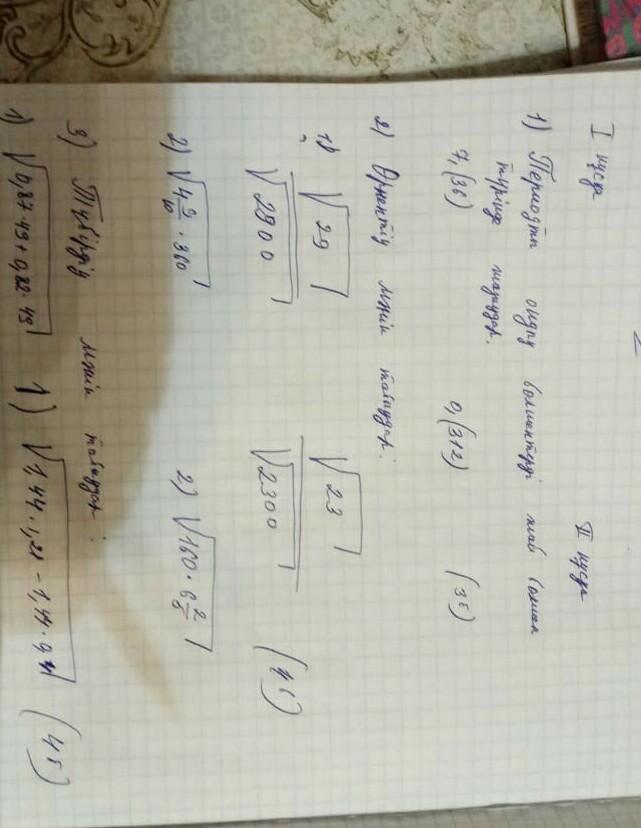 I нұсқа II нұсқа
1) Периодты ондық бөлшектерді жай бөлшек
түрінде жазыңдар.
7,(36) 0,(312) (3б)
2) Өрнектің мәнін табыңдар:
1) √29 √23
√2900 √2300 (4б)
2) √4 9/10 · 360 2) √160 · 6 2/5
3) Түбірдің мәнін табыңдар:
1) √0,87·49+0,82·49 1) √1,44·1,21-1,44·0,4 (4б)